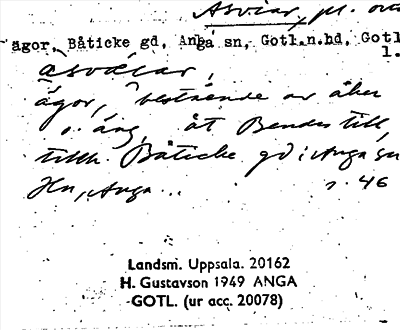 Asviar, pl.
ägor, Båticke gd, Anga sn, Gotl.n.hd, Gotl
l.
asvaiar,
ägor, bestående av åker
o. äng, åt Bendes till,
tillh. Båticke gd i Anga sn
Hn, Anga... s. 46
Landsm. Uppsala. 20162
H. Gustavson 1949 ANGA
GOTL. (ur acc. 20078)